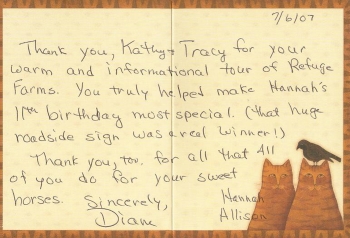 7/6/07
Thank you, Kathy & Tracy for your
warm and informational tour of Refuge
Farms. You truly helped make Hannah's
11th birthday most special. (that huge
roadside sign was a real winner!)
Thank you, too. for all that all
of you do for your sweet
horses. Sincerely, Hannah
Diane Allison